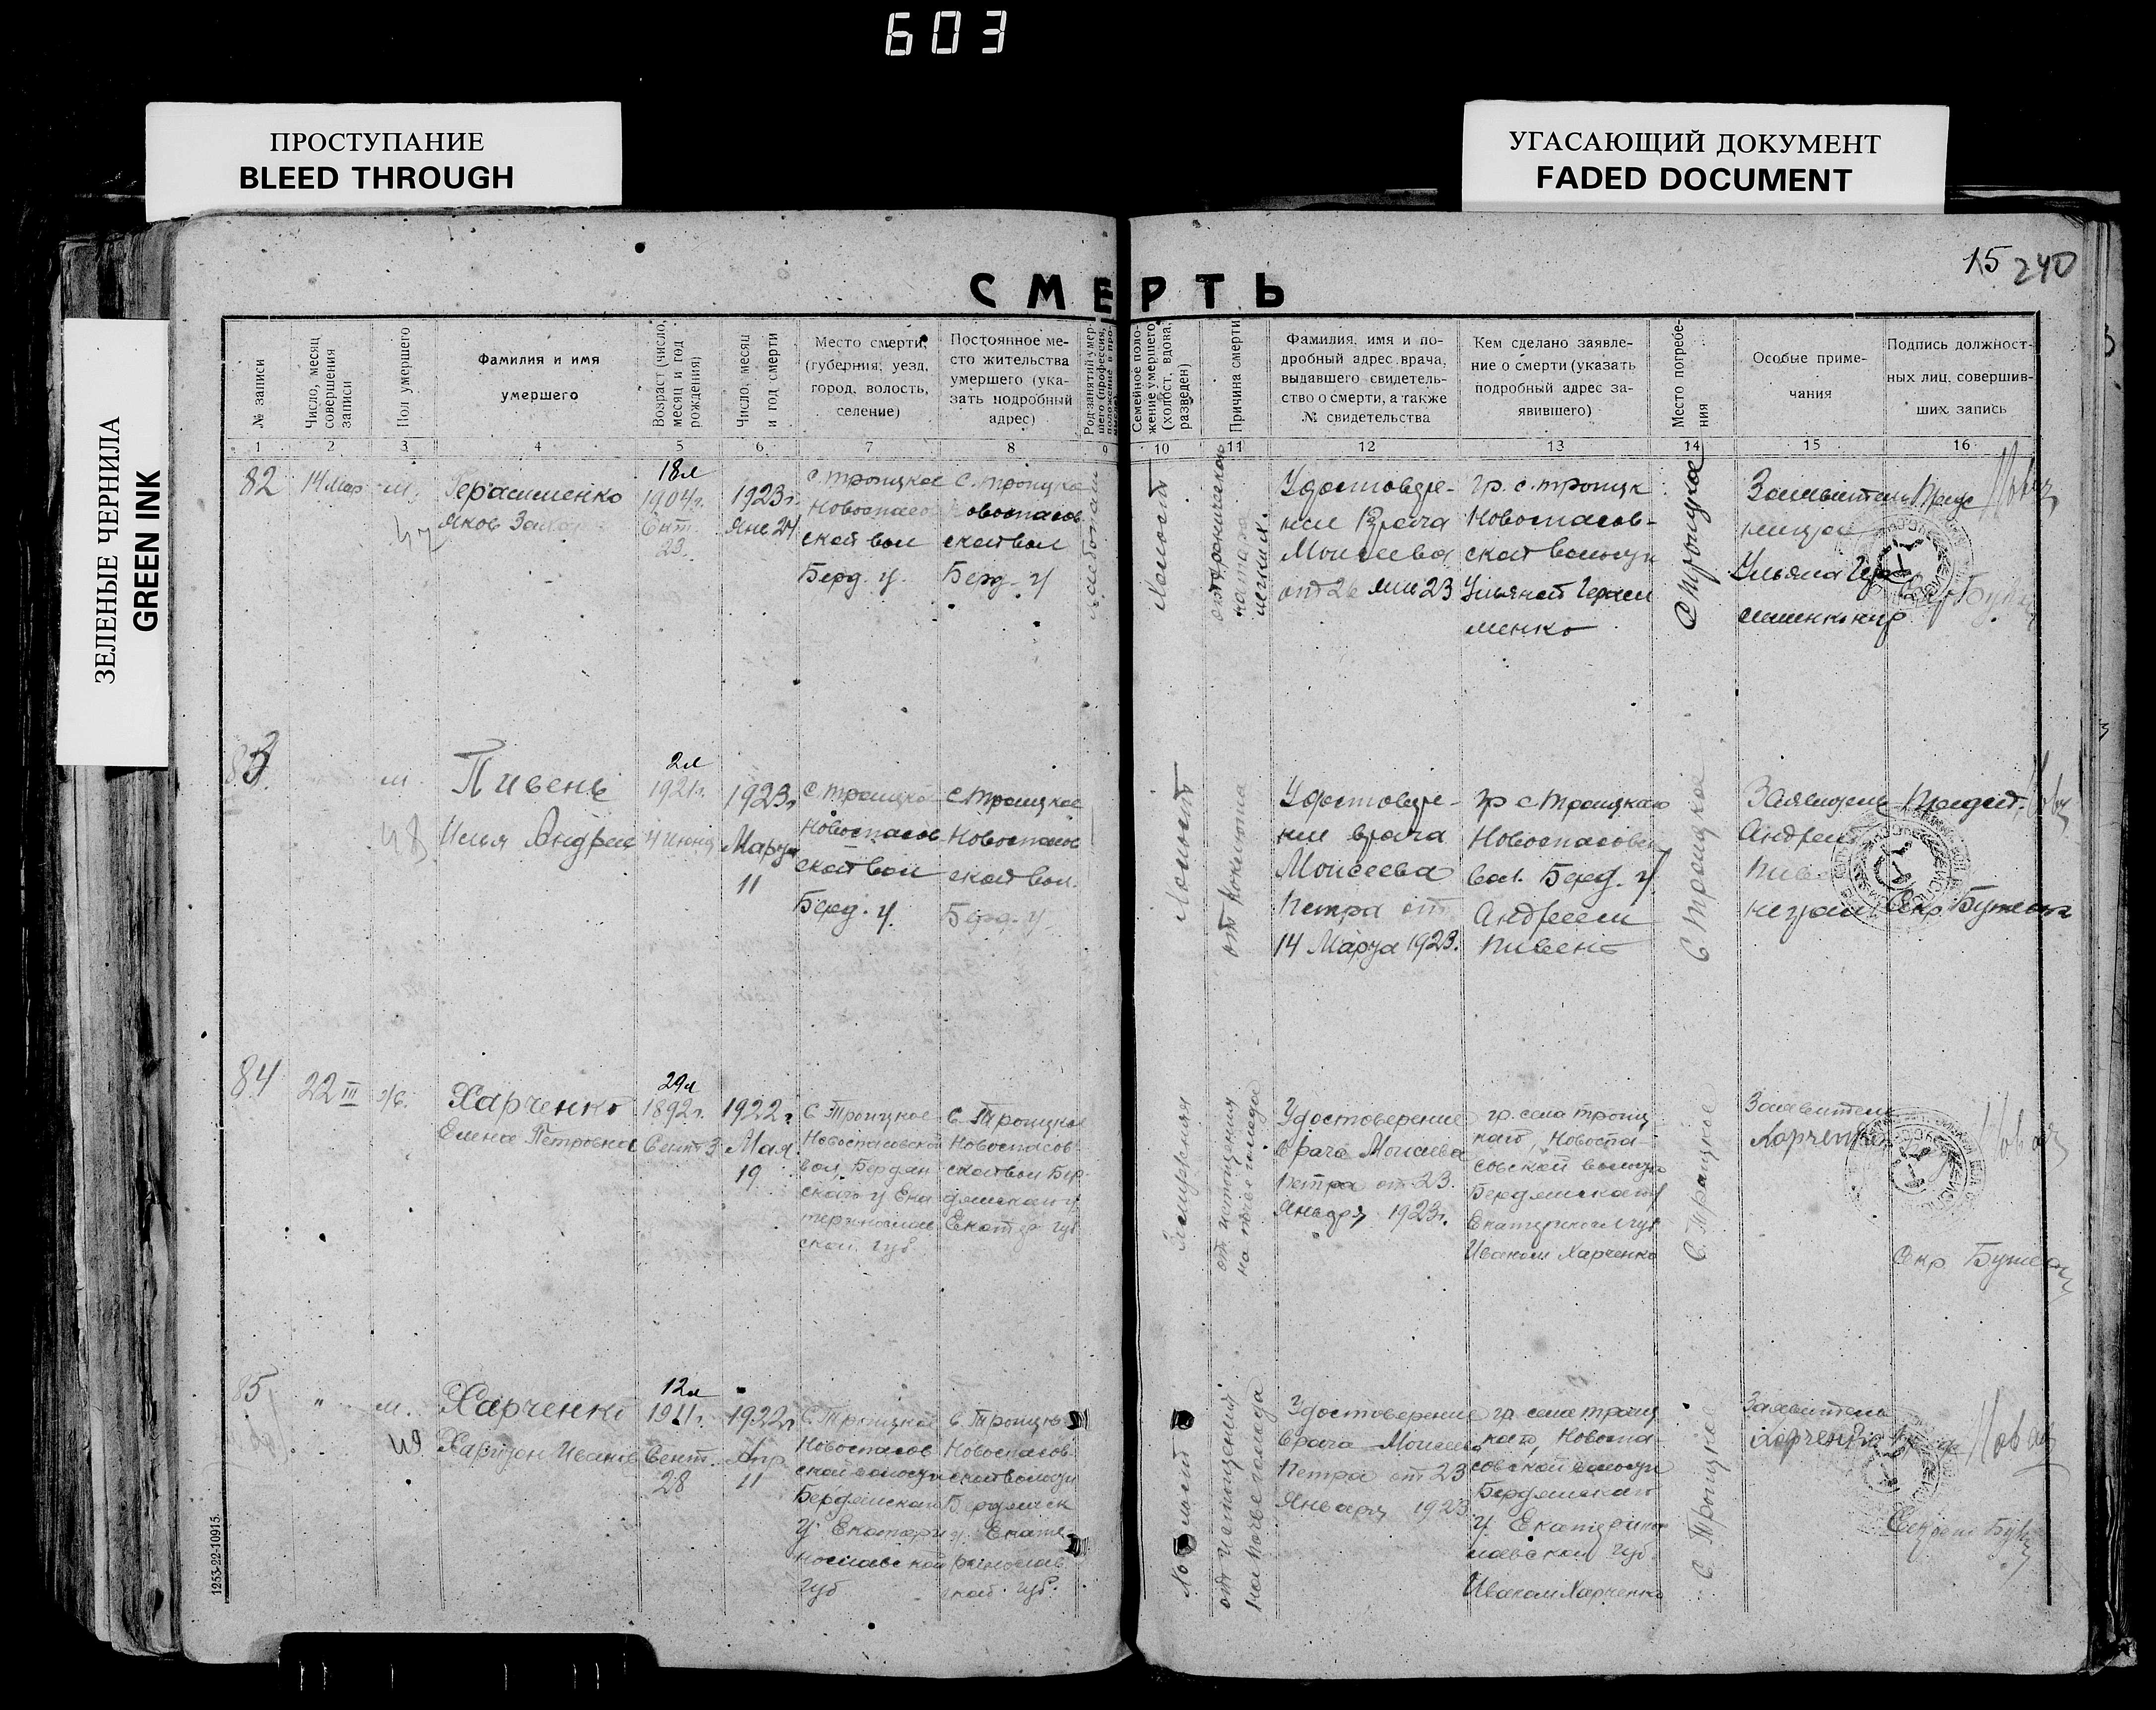 603
ПРОСТУПАНИЕ
BLEED THROUGH
УГАСАЮЩИЙ ДОКУМЕНТ
FADED DOCUMENT
ЗЕЛЕНЫЕ ЧЕРНИЛА
GREEN INK
15 240
СМЕРТЬ
№ записи
Число, месяц
совершения
записи
Пол умершего
Фамилия и имя
умершего
Возраст (число,
месяц и год
рождения)
Число, месяц
и год смерти
Место смерти,
(губерния, уезд,
город, волость,
селение)
Постоянное ме-
сто жительства
умершего (ука-
зать подробный
адрес)
Род занятий умер-
шего (профессия,
Семейное поло-
жение умершего
(холост, вдова,
разведен)
Причина смерти
Фамилия, имя и по-
дробный адрес врача,
выдавшего свидетель-
ство о смерти, а также
№ свидетельства
Кем сделано заявле-
ние о смерти (указать
подробный адрес за-
явившего)
Место погребе-
ния
Особые приме-
чания
Подпись должност-
ных лиц, совершив-
ших запись
1 2 3 4 5 6 7 8 9 10 11 12 13 14 15 16
82
14 мар
м.
47
Герасименко
Яков
18л
1904г.
Окт.
23.
1923г.
Янв 24
с. троицкое
Новоспасо
ской вол
Берд. у.
с. троицкое
Новоспасов
ской вол
Берд. у
Холост
легких.
Удостовере-
ние Врача
Моисеева
от 26 янв 23
гр. с. троицк
Новоспасов-
ской волости
Ульяной Гераси
менко
с Троицкое
Заявитель
Ульяна Гера
83
м
48
Пивень
Илья Андрее
2л
1921г.
4 июня
1923г
Марта
11
с. троицкое
Новоспасов
ской вол
Берд. у.
с. троицкое
Новоспасов
ской вол.
Берд. у
Холост
от
Удостовере-
ние врача
Моисеева
Петра от
14 Марта 1923.
гр с троицкаго
Новоспасовск
вол. Берд. у.
Андреем
Пивень
с Троицкое
Заявитель
Андрей
Пиве
Секр Бутенко
84
22 III
ж.
Харченко
Елена Петровна
29л
1892г.
Сент 3
1922г
Мая
19
с Троицкое
Новоспасовской
вол, Бердян
ского у Ека
теринослав
ской губ
с. Троицкое
Новоспасов
ской вол Бер
дянского у
Екатер губ
Замужняя
от истощения
на почве голода
Удостоверение
врача Моисеева
Петра от 23.
Января 1923г.
гр. села троиц
каго, Новоспа-
совской волости
Бердянского у
Екатеринос губ
Иваном Харченко
с. Троицкое
Заявитель
Харченко
85
"
м.
49
Харченко
Харитон Иванов
12л
1911г.
Сент.
28
1922г
Апр
11
с. Троицкое
Новоспасов
ской волости
Бердянскаго
у Екатери
нославской
губ
с. Троицкое
Новоспасов-
ской волости
Бердянск
у. Екате
ринослав
ской губ.
Холост
от истощения
на почве голода
Удостоверение
врача Моисеева
Петра от 23
Января 1923
гр села троиц
каго, Новоспа-
совской волости
Бердянскаго
у Екатерино
славской губ.
Иваном Харченко
с. Троицкое
Заявитель
Харченко
1253-22-10915